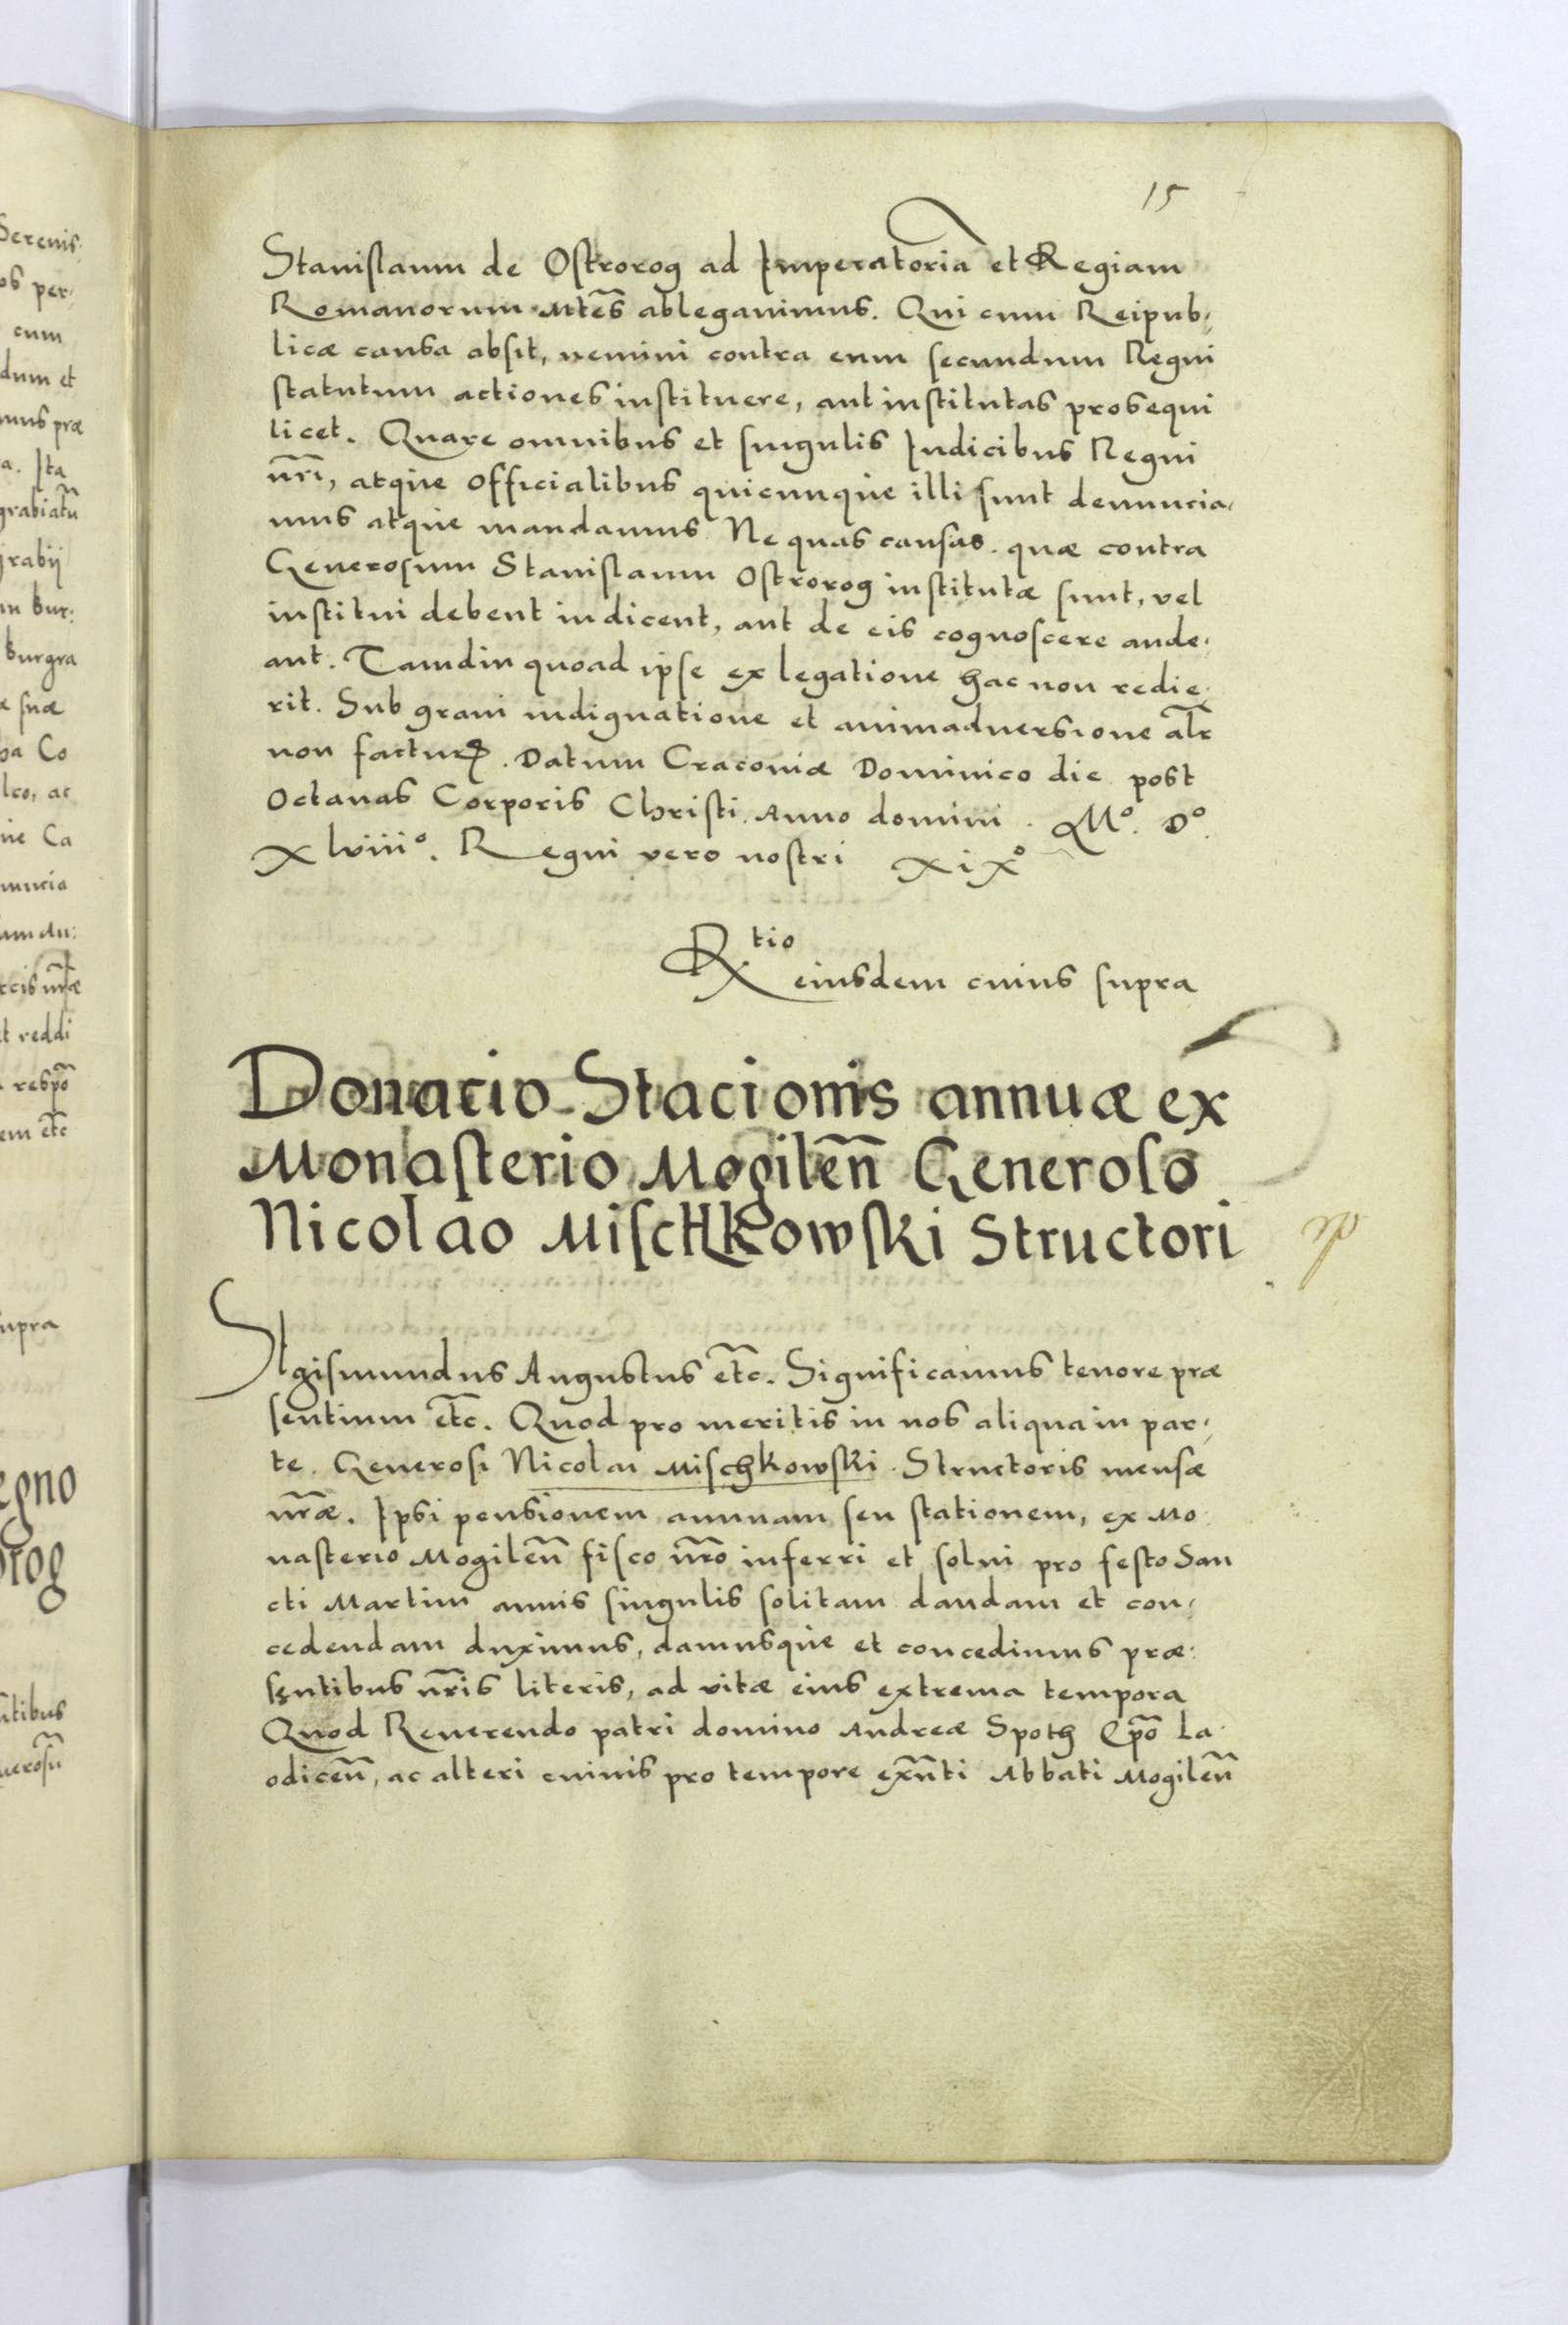 15
Stanislaum de Ostrorog ad Imperatoria et Regiam
Romanorum Mtēs ablegavimus. Qui cum Reipub-
licæ causa absit, nemini contra eum secundum Regni
statutum actiones instituere, aut institutas prosequi
licet. Quare omnibus et singulis Iudicibus Regni
nr̄i, atque officialibus quicunque illi sunt denuncia-
mus atque mandamus Ne quas causas quæ contra
Generosum Stanislaum Ostrorog institutæ sunt, vel
institui debent iudicent, aut de eis cognoscere aude-
ant. Tamdiu quoad ipse ex legatione hac non redie-
rit. Sub gravi indignatione et animadversione alr̄
non facturꝝ. Datum Cracoviæ Dominico die post
Octavas Corporis Christi. Anno domini. Mº. Dº.
xlviiiº. Regni vero nostri xixº
Rtio
eiusdem cuius supra
Donacio Stacionis annuæ ex
Monasterio Mogilen̄ Generoso
Nicolao Mischkowski Structori
Sigismundus Augustus etc̄. Significamus tenore præ
sentium etc̄. Quod pro meritis in nos aliqua in par-
te. Generosi Nicolai Mischkowski. Structoris mensæ
nr̄æ. Ipsi pensionem annuam seu stationem, ex Mo
nasterio Mogilen̄ fisco nr̄o inferri et solvi pro festo San
cti Martini annis singulis solitam dandam et con-
cedendam duximus, damusque et concedimus præ-
sentibus nr̄is literis, ad vitæ eius extrema tempora
Quod Reverendo patri domino Andreæ Spoth Ep̄o La-
odicen̄, ac alteri cuivis pro tempore exn̄ti Abbati Mogilen̄